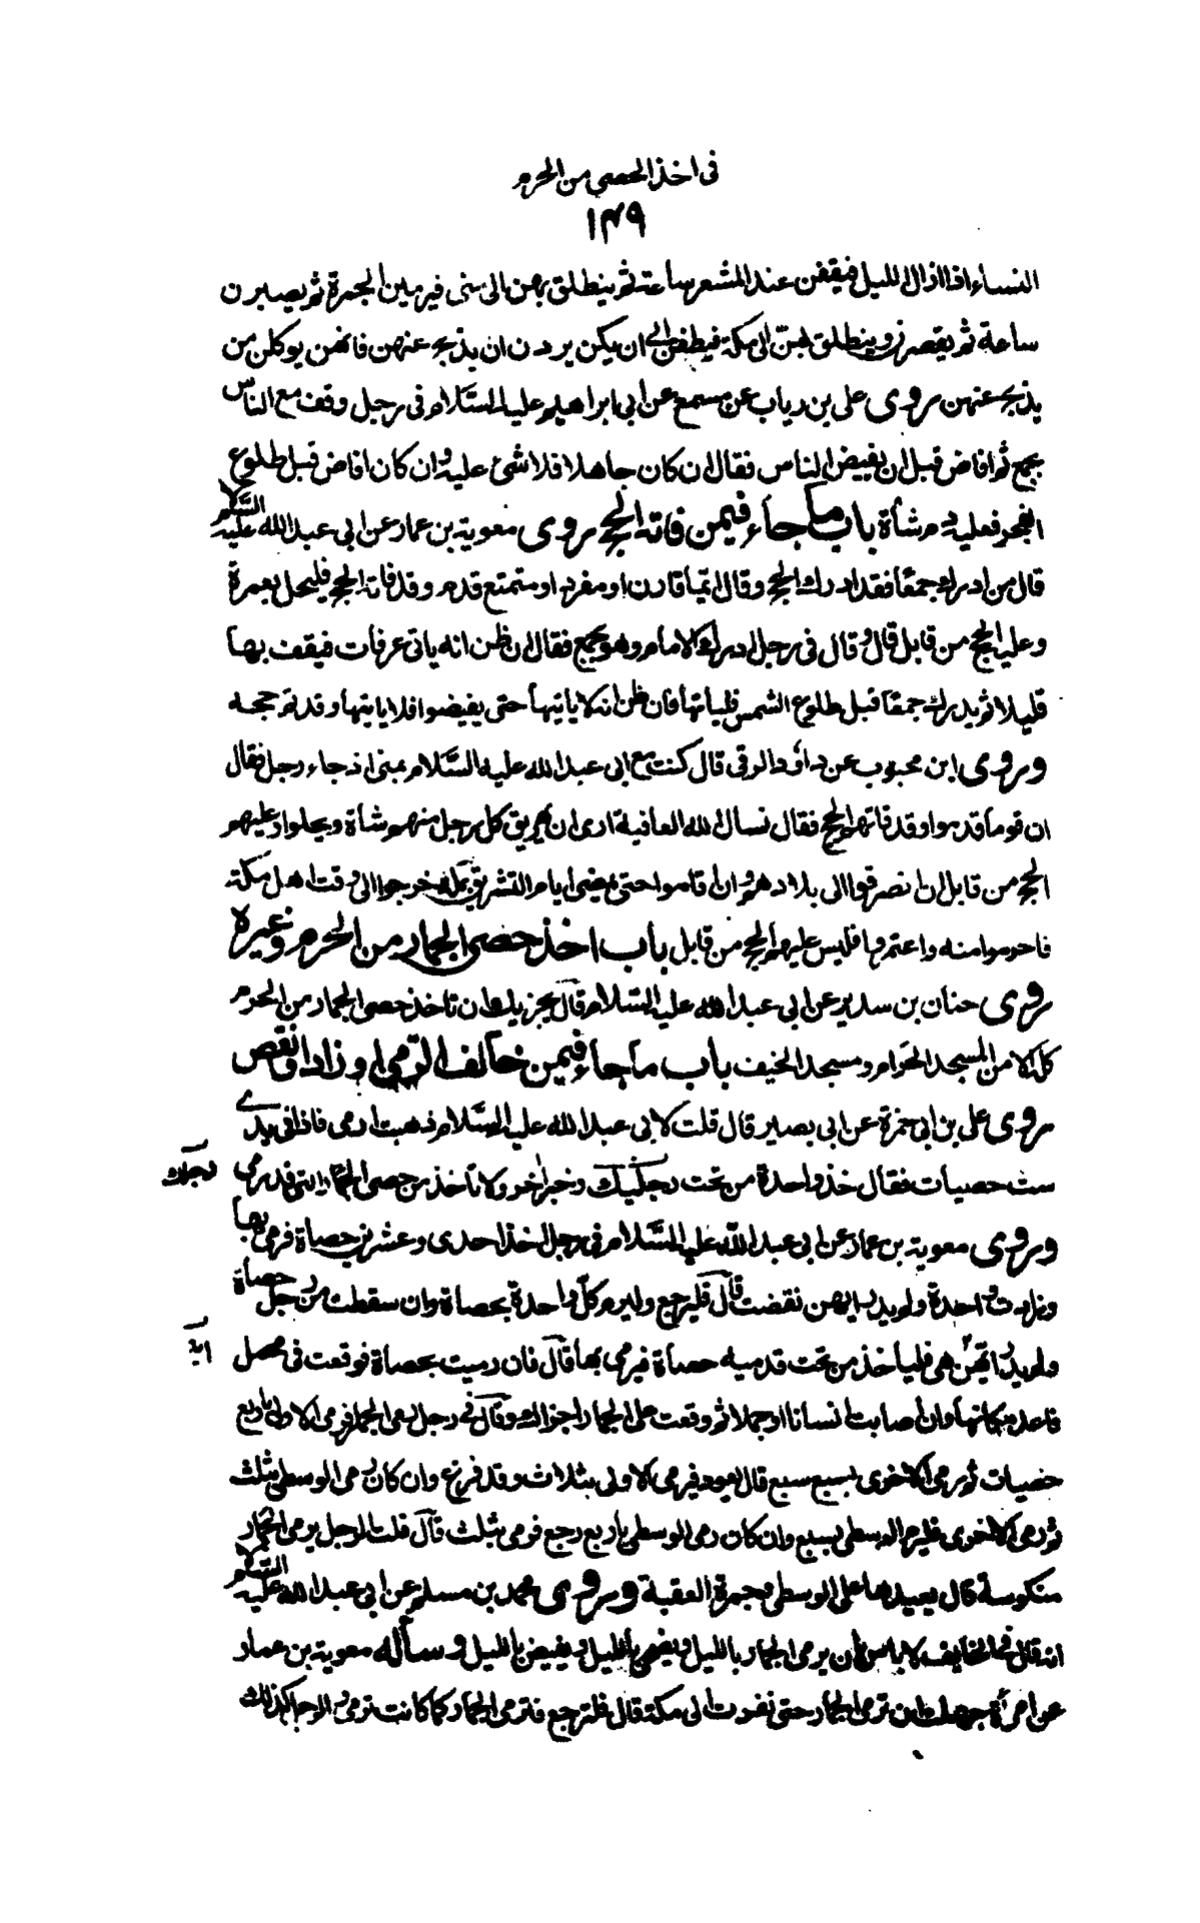 فى اخذ الحصى من الحرم
١٣٩
النساء اذا زال الليل فيقفن عند المشعر ساعة ثم ينطلق بهن الى منى فيرمين الجمرة ثم يصبرن
ساعة ثم يقصرن وينطلق بهن الى مكة فيطفن الا ان يكن يردن ان يذبح عنهن فانهن يوكلن من
يذبح عنهن وروى على بن رياب عن مسمع عن ابى ابراهيم عليه السلام فى رجل وقف مع الناس
بجمع ثم افاض قبل ان يفيض الناس فقال ان كان جاهلا فلا شئ عليه وان كان افاض قبل طلوع
الفجر فعليه دم شاة باب ما جاء فيمن فاته الحج روى معوية بن عمار عن ابى عبد الله عليه السلام
قال من ادرك جمعا فقد ادرك الحج وقال ايما قارن او مفرد او متمتع قدم وقد فاته الحج فليحل بعمرة
وعليه الحج من قابل قال وقال فى رجل ادرك الامام وهو بجمع فقال ان ظن انه ياتى عرفات فيقف بها
قليلا ثم يدرك جمعا قبل طلوع الشمس فلياتها فان ظن انه لا ياتيها حتى يفيضوا فلا ياتيها وقد تم حجه
وروى ابن محبوب عن داود الرقى قال كنت مع ابى عبد الله عليه السلام بمنى اذ جاء رجل فقال
ان قوما قدموا وقد فاتهم الحج فقال نسال الله العافية ارى ان يهريق كل رجل منهم شاة ويحلوا وعليهم
الحج من قابل ان انصرفوا الى بلادهم وان اقاموا حتى يمضى ايام التشريق بمكة خرجوا الى وقت اهل مكة
فاحرموا منه واعتمروا فليس عليهم الحج من قابل باب اخذ حصى الجمار من الحرم وغيره
روى حنان بن سدير عن ابى عبد الله عليه السلام قال يجزيك ان تاخذ حصى الجمار من الحرم
كله الا من المسجد الحرام ومسجد الخيف باب ما جاء فيمن خالف الرمى او زاد او نقص
روى على بن ابى حمزة عن ابى بصير قال قلت لابى عبد الله عليه السلام ذهبت ارمى فاذا فى يدى
ست حصيات فقال خذ واحدة من تحت رجليك وخبر اخر ولا تاخذ من حصى الجمار التى قد رمى
وروى معوية بن عمار عن ابى عبد الله عليه السلام فى رجل اخذ احدى وعشرين حصاة فرمى بها
وزادت واحدة ولم يدر ايهن نقصت قال فليرجع وليرم كل واحدة بحصاة وان سقطت من رجل حصاة
ولم يدر ايتهن هى فلياخذ من تحت قدميه حصاة فيرمى بها قال فان رميت بحصاة فوقعت فى محمل
فاعد مكانها وان اصابت انسانا او جملا ثم وقعت على الجمار اجزاك وقال فى رجل رمى الجمار فرمى الاولى باربع
حصيات ثم رمى الاخرى بسبع سبع قال يعود فيرمى الاولى بثلاث وقد فرغ وان كان رمى الوسطى بثلث
ثم رمى الاخرى فليرم الوسطى بسبع وان كان رمى الوسطى باربع رجع فرمى بثلث قال قلت الرجل يرمى الجمار
منكوسة قال يعيدها على الوسطى وجمرة العقبة وروى محمد بن مسلم عن ابى عبد الله عليه السلام
انه قال فى الخايف لا باس ان يرمى الجمار بالليل ويضحى بالليل ويفيض بالليل وساله معوية بن عمار
عن امراة جهلت ان ترمى الجمار حتى نفرت الى مكة قال فلترجع فترمى الجمار كما كانت ترمى والرجل كذلك